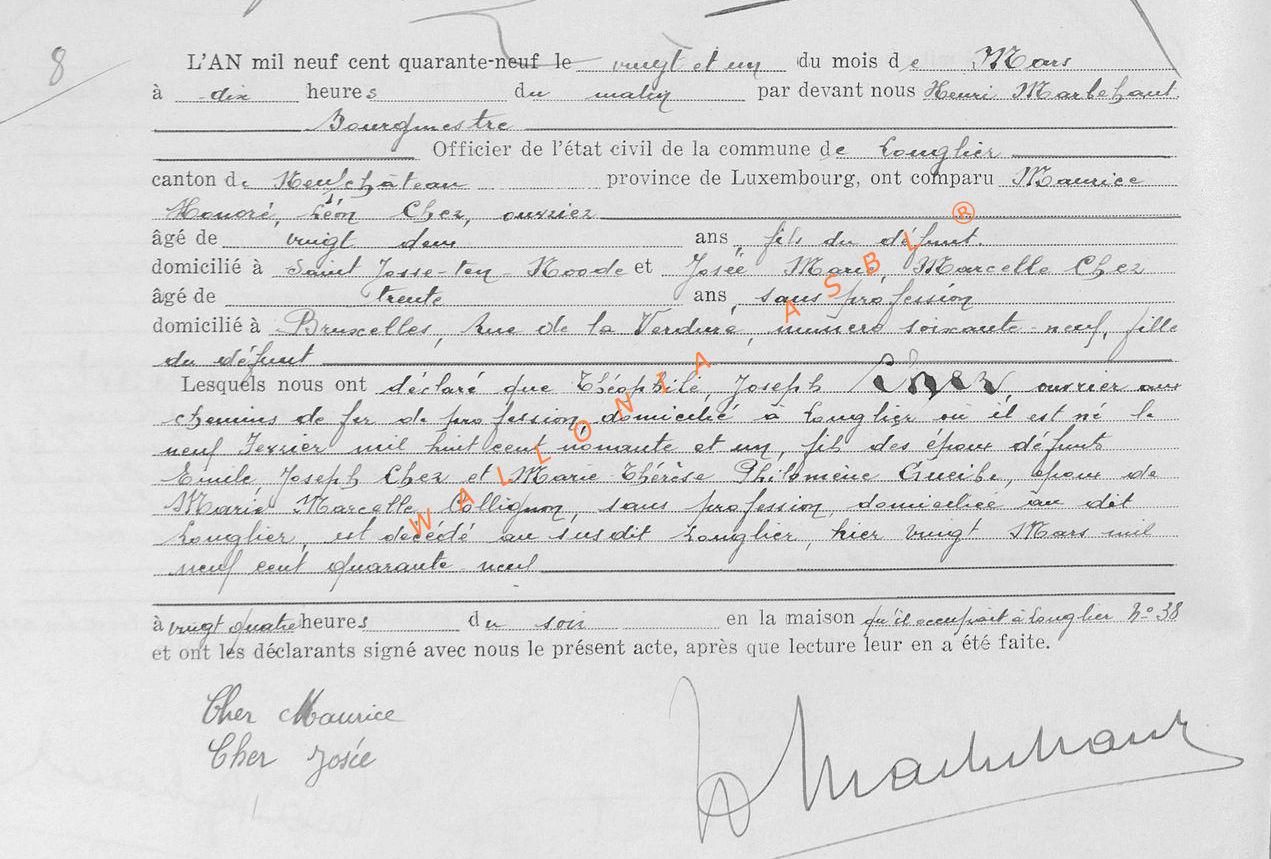 8
L'AN mil neuf cent quarante-neuf le vingt et un du mois de Mars
à dix heures du matin par devant nous Henri Marbehant
Bourgmestre
Officier de l'état civil de la commune de Longlier
canton de Neufchâteau province de Luxembourg, ont comparu Maurice
Honoré, Léon Cher, ouvrier
âgé de vingt deux ans, fils du défunt.
domicilié à Saint Josse-ten-Noode et Josée Marie, Marcelle Cher
âgé de trente ans, sans profession
domicilié à Bruxelles, Rue de la Verdure, numéro soixante-neuf, fille
du défunt
Lesquels nous ont déclaré que Théophile, Joseph Cher, ouvrier aux
chemins de fer de profession, domicilié à Longlier où il est né le
neuf Février mil huit cent nonante et un, fils des époux défunts
Emile Joseph Cher et Marie Thérèse Philomène Gueibe, époux de
Marie Marcelle Collignon, sans profession, domiciliée au dit
Longlier, est décédé au susdit Longlier, hier vingt Mars mil
neuf cent quarante neuf
à vingt quatre heures du soir en la maison qu'il occupait à Longlier N° 38
et ont les déclarants signé avec nous le présent acte, après que lecture leur en a été faite.
Cher Maurice
Cher Josée
WALLONIA ASBL ®